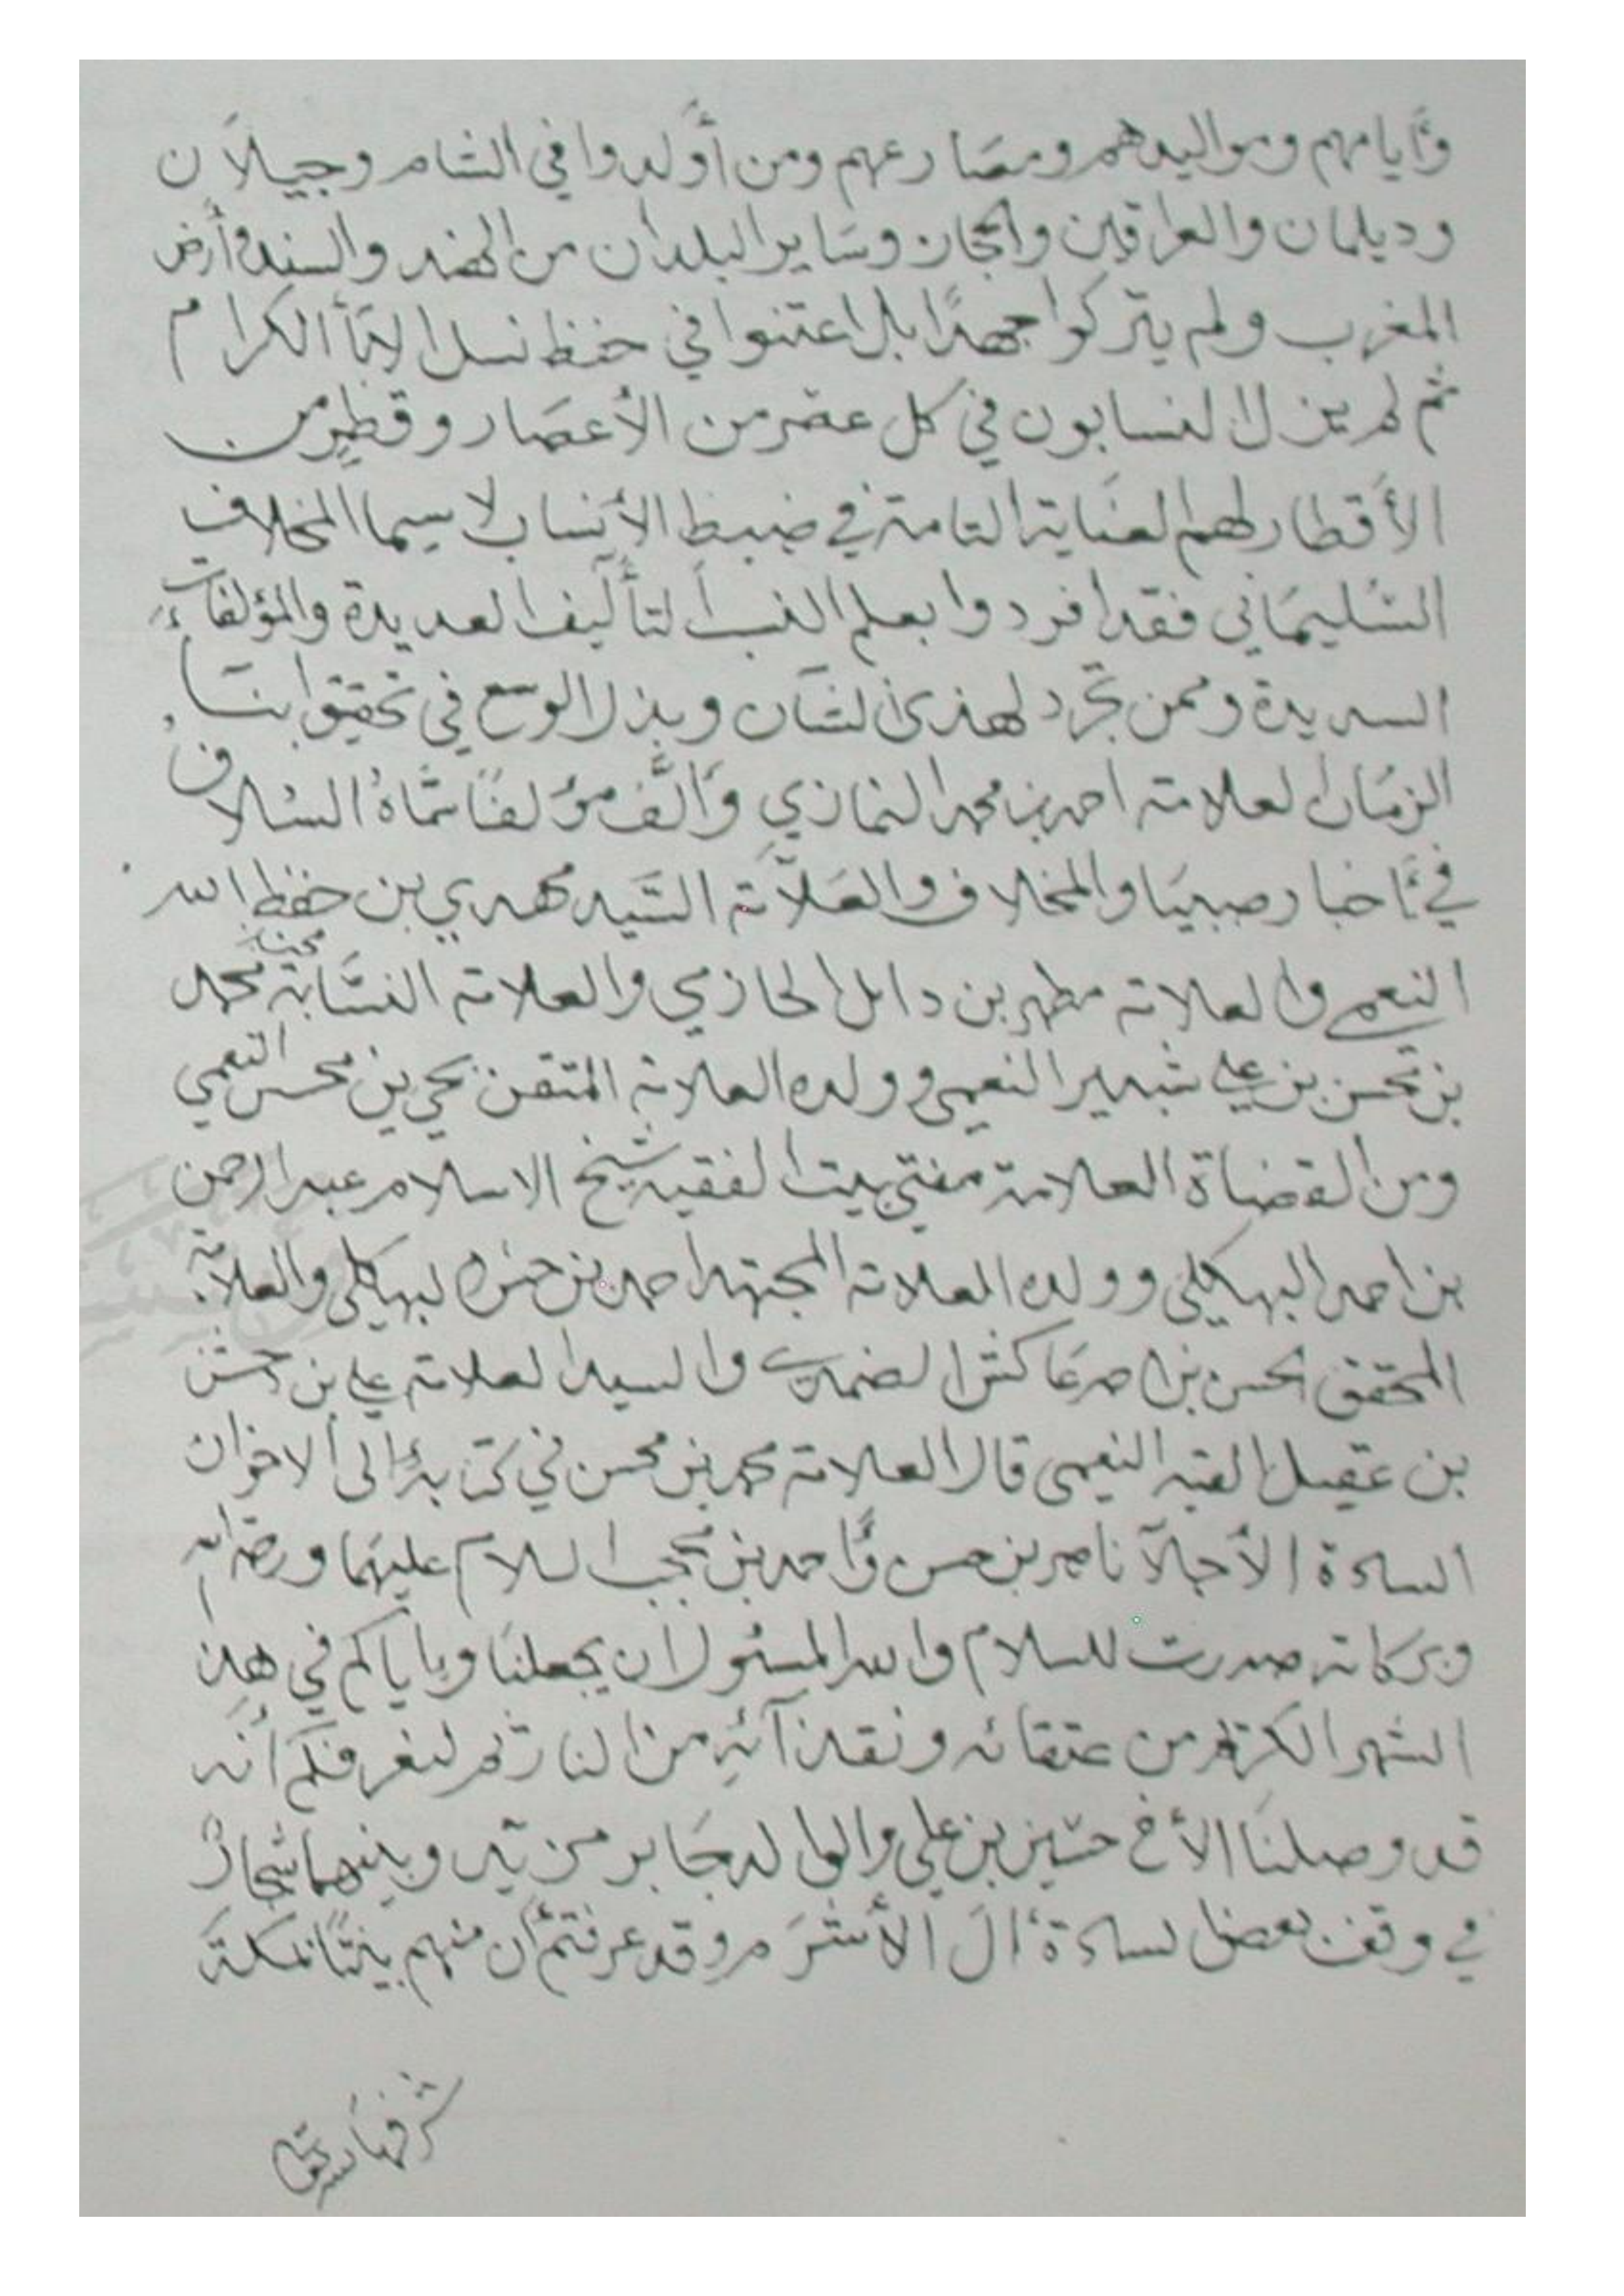 وأيامهم ومواليدهم ومصارعهم ومن أولدوا في الشام وجيلان
وديلمان والعراقين والحجاز وساير البلدان من الهند والسند وأرض
المغرب ولم يتركوا جهدًا بل اعتنوا في حفظ نسل الكرام
ثم لم يزل النسابون في كل عصر من الأعصار وقطر من
الأقطار لهم العناية التامة في ضبط الأنساب لا سيما المخلاف
السليماني فقد افردوا بعلم النسب التأليف العديدة والمؤلفات
السديدة وممن تجرد لهذى الشان وبذل الوسع في تحقيق
الزمان العلامة احمد بن محمد النمازي وألَّف مؤلفًا سماهُ السلاف
في أخبار صبيا والمخلاف والعلامة السَّيد مهدي بن حفظ الله
النعمي والعلامة مطهر بن دايل الحازمي والعلامة النسَّابة محمد
بن محسن بن علي شبير النعمي وولده العلامة المتقن يحي بن محسن النعمي
ومن القضاة العلامة مفتي بيت الفقيه شيخ الاسلام عبد الرحمن
بن احمد البهكلي وولده العلامة المجتهد احمد بن حسن البهكلي والعلامة
المحقق الحسن بن احمد عاكش الضمدي والسيد العلامة علي بن حسن
بن عقيل النعمي قال العلامة محمد بن محسن في كتابه إلى الاخوان
السادة الأجلآ ناصر بن حسن وأحمد بن السلام عليهما ورحمة الله
وبركاته صدرت للسلام والله المسئول ان يجعلنا وياياكم في هذا
الشهر الكريم من عتقائه ونقذآئهِ من النار ثم لنعرفكم أنه
قد وصلنا الأخ حسين بن علي والوالد جابر وبينهما شجارٌ
في وقف بعض السادة أل وقد عرفتم أن منهم بيتًا